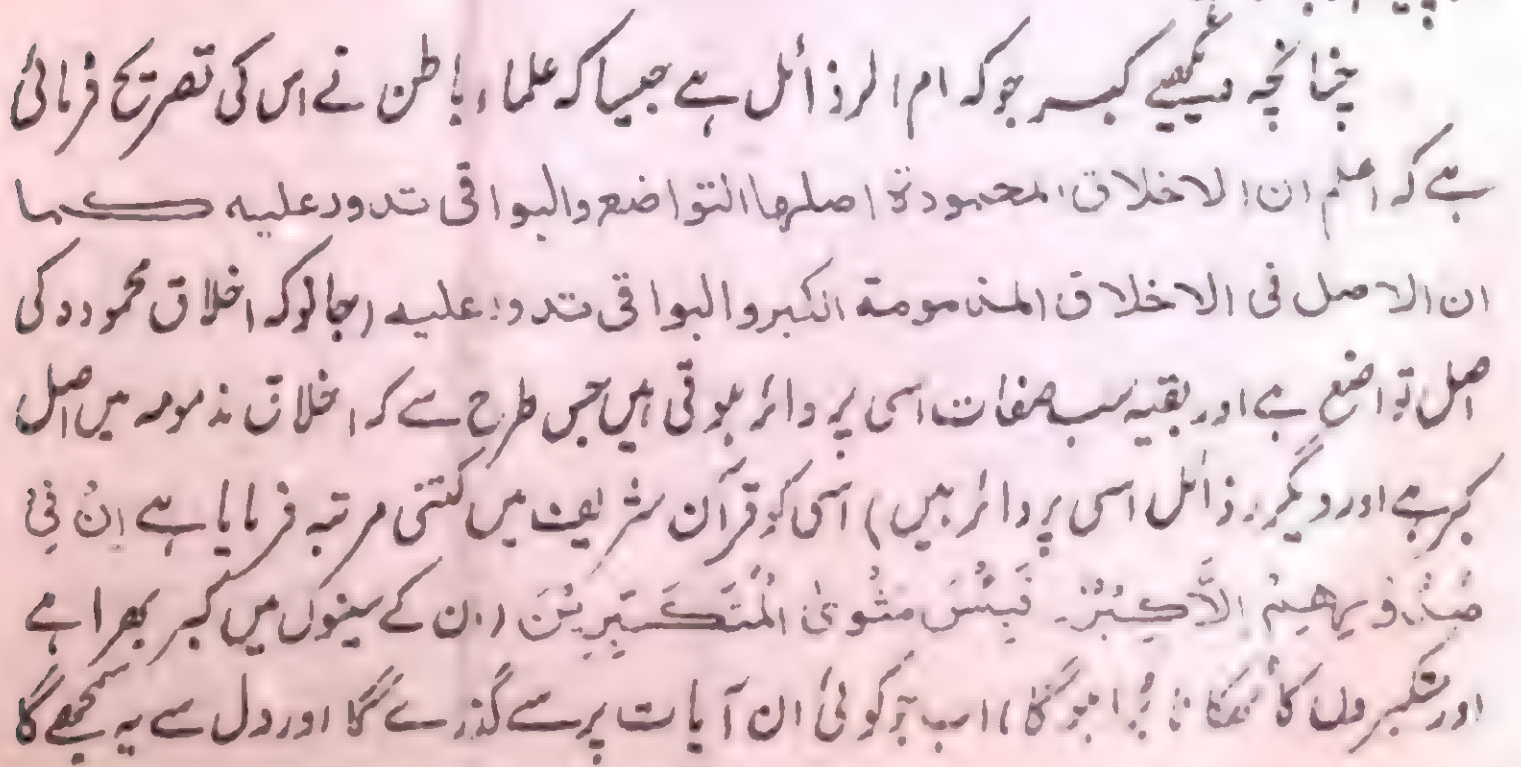 چنانچہ دیکھیے کبر جو کہ ام الرذائل ہے جیسا کہ علماء باطن نے اس کی تصریح فرمائی
ہے کہ اعلم ان الاخلاق المحمودة اصلها التواضع والبواقی تدور علیه کما
ان الاصل فی الاخلاق المذمومة الکبر والبواقی تدور علیه (جانو کہ اخلاق محمودہ کی
اصل تواضع ہے اور بقیہ سب صفات اسی پر دائر ہوتی ہیں جس طرح سے کہ اخلاق مذمومہ میں اصل
کبر ہے اور دیگر رذائل اسی پر دائر ہیں) اسی کو قرآن شریف میں کتنی مرتبہ فرمایا ہے اِنْ فِیْ
صُدُوْرِهِمْ اِلَّا كِبْرٌ۔ فَبِئْسَ مَثْوَی الْمُتَكَبِّرِیْنَ (ان کے سینوں میں کبر بھرا ہے
اور متکبروں کا ٹھکانا بُرا ہوگا) اب جو کوئی ان آیات پر سے گذرے گا اور دل سے یہ سمجھے گا